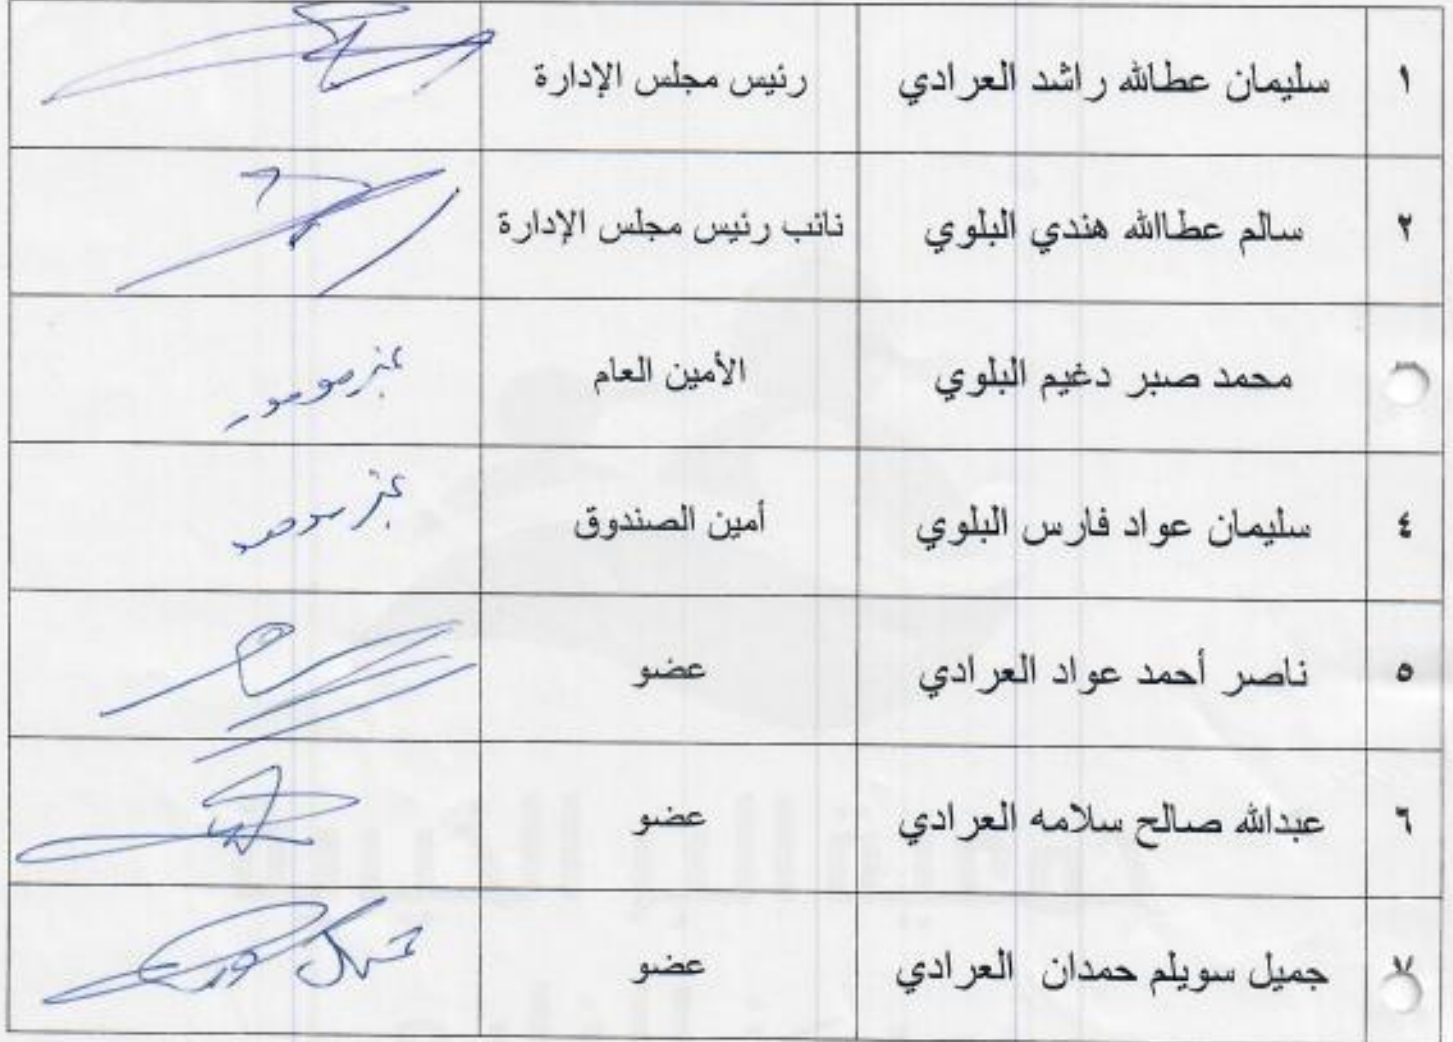 ١ سليمان عطالله راشد العرادي رئيس مجلس الإدارة
٢ سالم عطاالله هندي البلوي نائب رئيس مجلس الإدارة
محمد صبر دغيم البلوي الأمين العام غير موجود
٤ سليمان عواد فارس البلوي أمين الصندوق غير موجود
٥ ناصر أحمد عواد العرادي عضو
٦ عبدالله صالح سلامه العرادي عضو
٧ جميل سويلم حمدان العرادي عضو